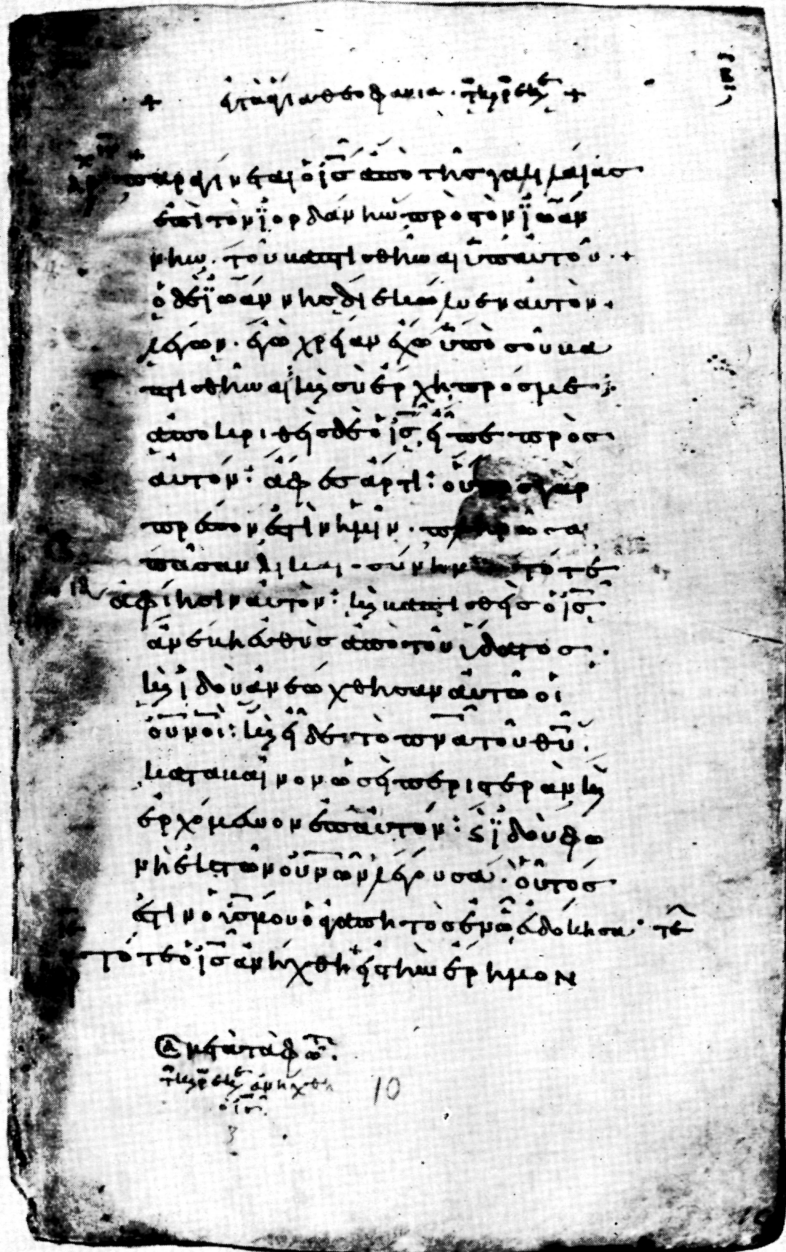 + εἰς τὰ ἅγια θεοφάνια. τῷ καιρῷ ἐκείνῳ +
παραγίνεται ὁ ἰς ἀπὸ τῆς γαλιλαίας
ἐπὶ τὸν ϊορδάνην πρὸς τὸν ϊωάν
νην. τοῦ βαπτισθῆναι ὑπ αὐτοῦ. +
ὁ δὲ ϊωάννης διεκώλυεν αὐτὸν.
λέγων. ἐγὼ χρείαν ἔχω ὑπὸ σοῦ βα
πτισθῆναι καὶ σὺ ἔρχη πρός με;
ἀποκριθεὶς δὲ ὁ ἰς εἶπε πρὸς
αὐτόν: ἄφες ἄρτι: οὕτως γὰρ
πρέπον ἐστὶν ἡμῖν.
πᾶσαν τότε
ἀφίησιν αὐτόν: καὶ βαπτισθεὶς ὁ ἰς
ἀνέβη εὐθὺς ἀπὸ τοῦ ὕδατος.
καὶ ἰδοὺ ἀνεώχθησαν αὐτῶ οἱ
οὐνοι: καὶ εἶδεν τὸ πνα τοῦ θυ.
καταβαῖνον ὡσεὶ περιστερὰν καὶ
ἐρχόμενον ἐπ αὐτόν: καὶ ϊδοὺ φω
νὴ ἐκ τῶν οὐνων λέγουσα. οὗτός
ἐστιν ὁ υἱός μου ὁ ἀγαπητὸς ἐν ὧ εὐδόκησα. τε
τότε ὁ ἰς ἀνήχθη εἰς τὴν ἔρημον
μετὰ τὰ φῶτα.
τῷ καιρῷ ἐκείνῳ ἀνήχθη
ὁ ἰς
10